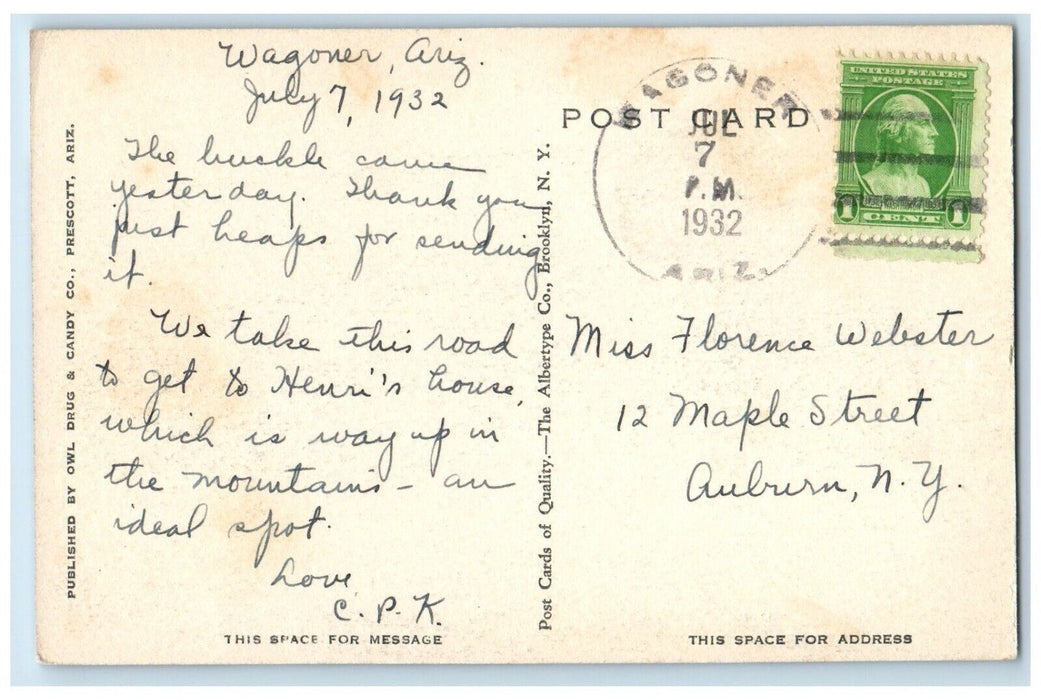 Wagoner, Ariz.
July 7, 1932
The buckle came
yesterday. Thank you
just heaps for sending
it.
We take this road
to get to Henri's house,
which is way up in
the mountains - an
ideal spot.
Love,
C. P. K.
THIS SPACE FOR MESSAGE
PUBLISHED BY OWL DRUG & CANDY CO., PRESCOTT, ARIZ.
Post Cards of Quality.—The Albertype Co., Brooklyn, N. Y.
POST CARD
WAGONER
JUL
7
P.M.
1932
ARIZ.
UNITED STATES
POSTAGE
1 CENT 1
Miss Florence Webster
12 Maple Street
Auburn, N.Y.
THIS SPACE FOR ADDRESS